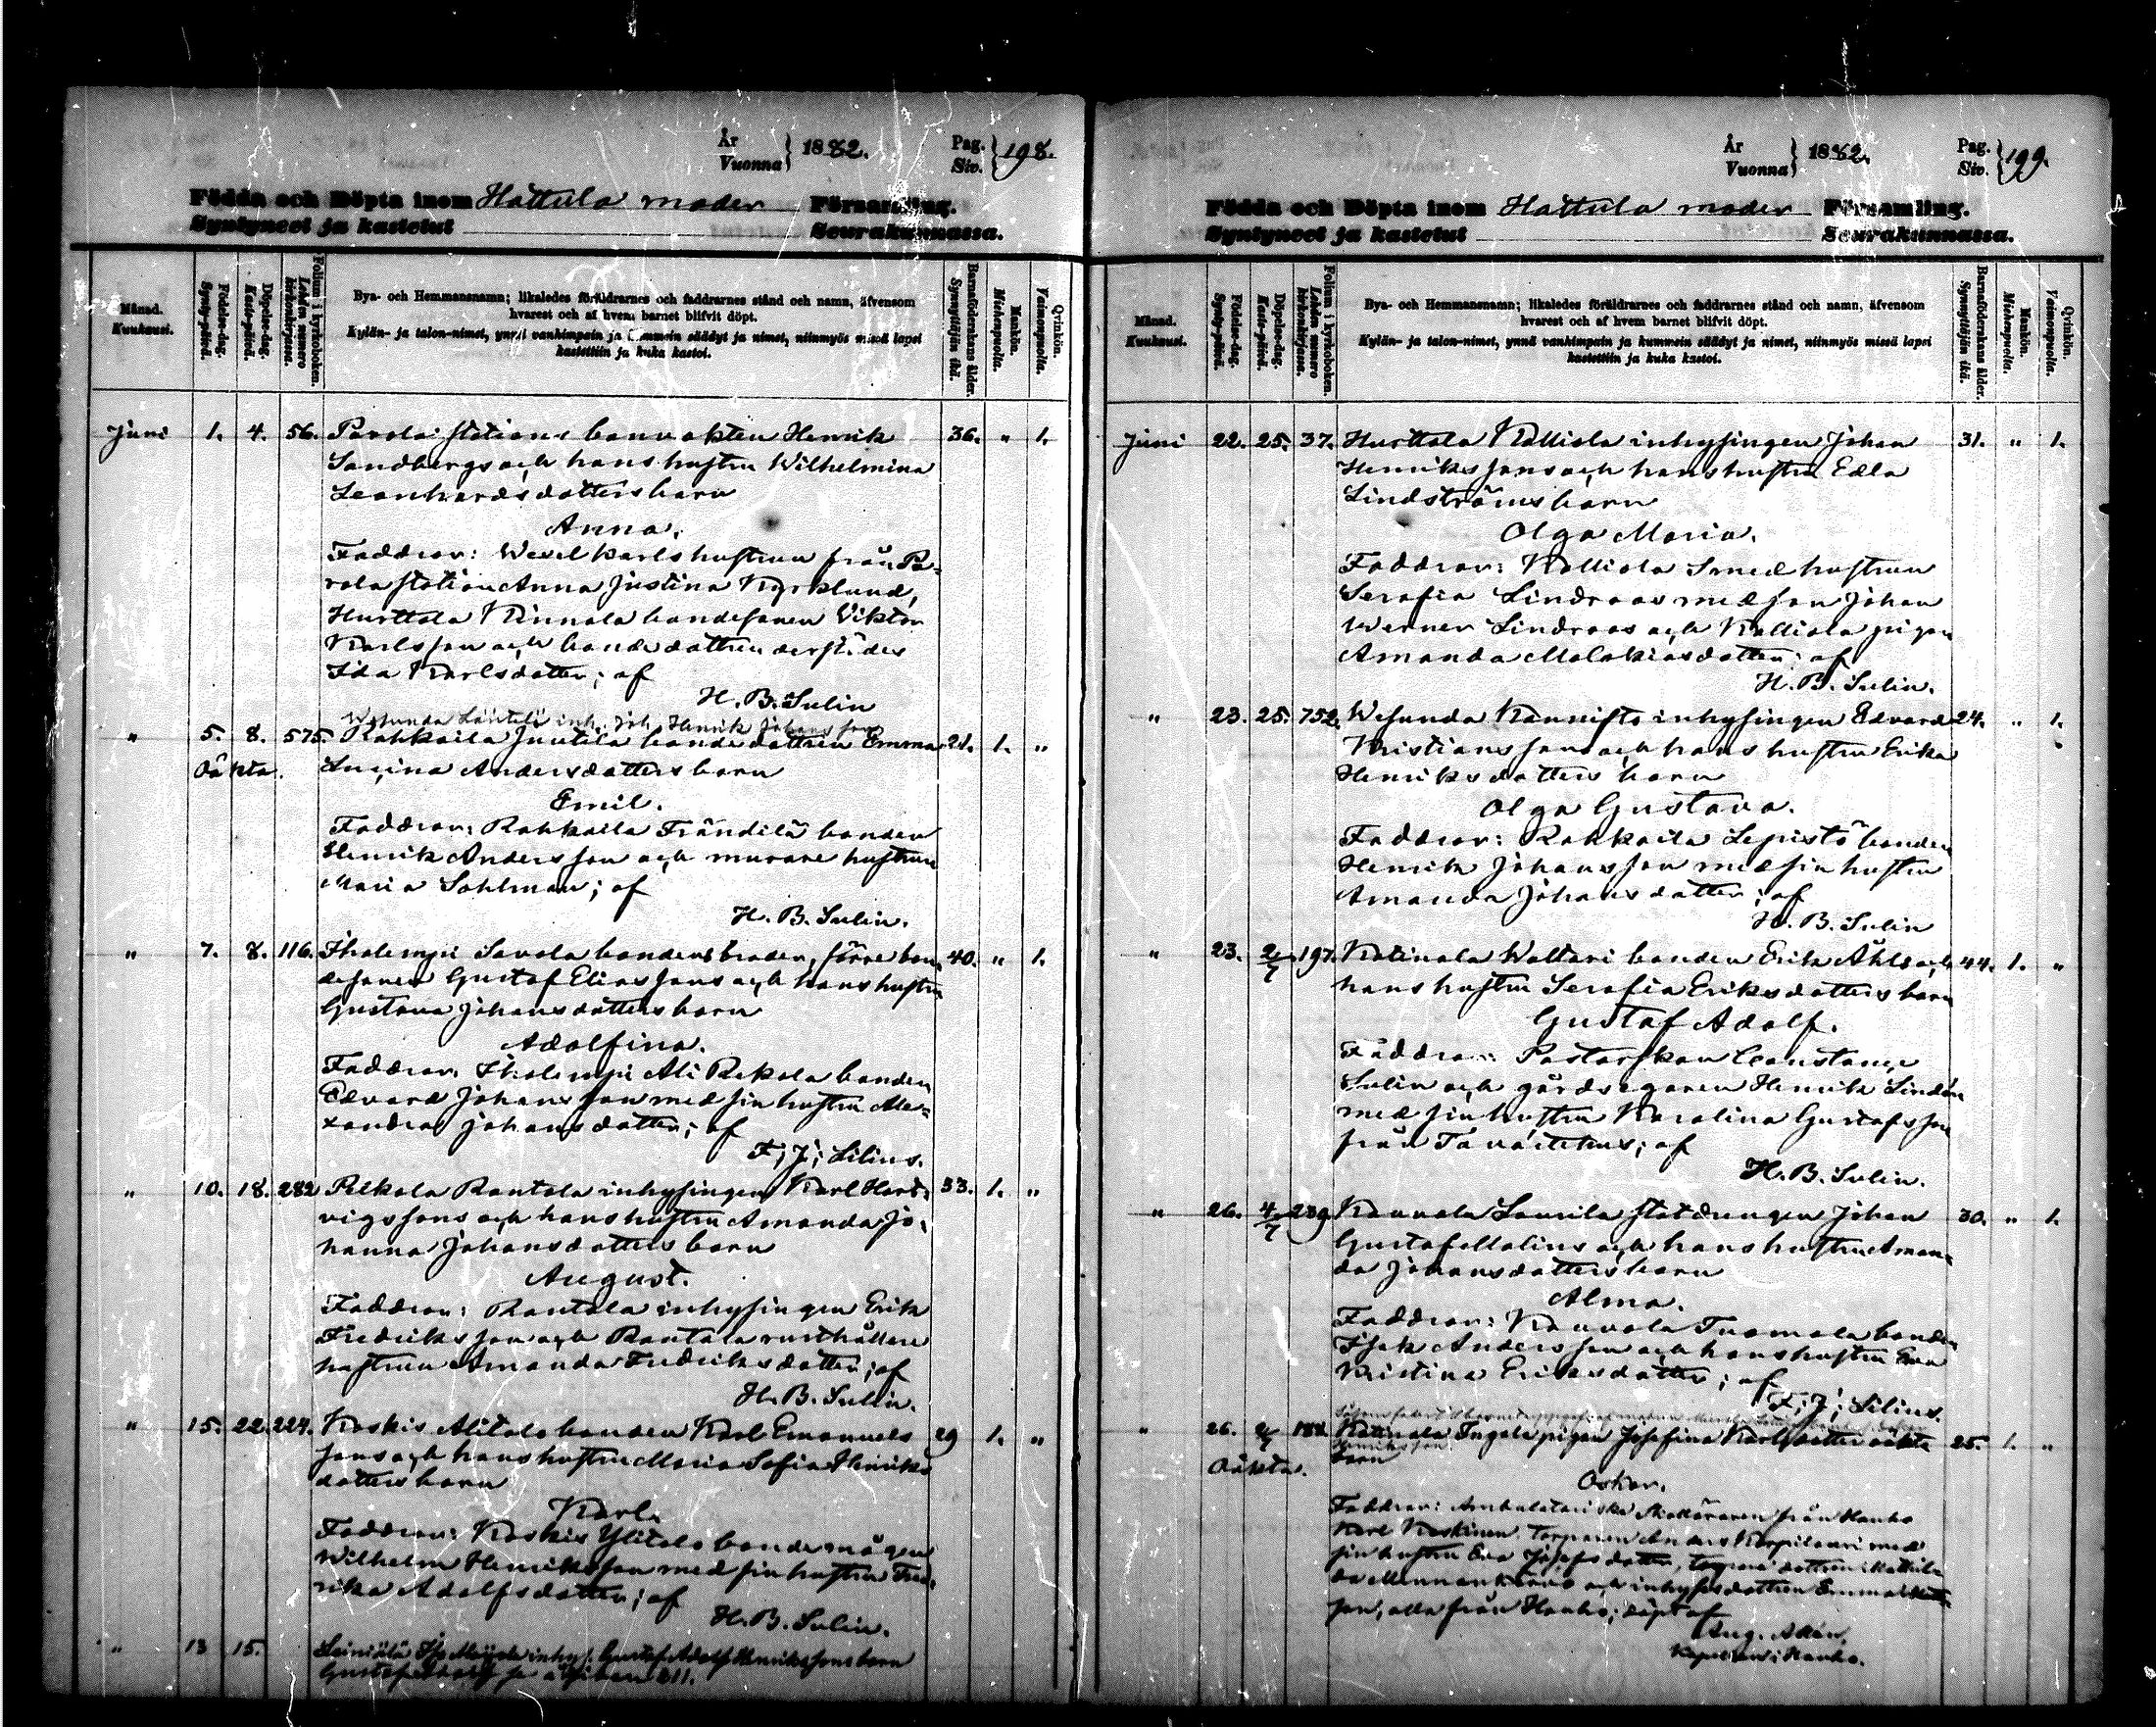 År
Vuonna } 1882.
Pag.
Siv. } 198.
Födda och Döpta inom Hattula moder Församling.
Syntyneet ja kastetut Seurakunnassa.
Månad.
Kuukausi.
Födelse-dag.
Synty-päivä.
Döpelse-dag.
Kaste-päivä.
Folium i kyrkoboken.
Lehden numero kirkonkirjassa.
Bya- och Hemmansnamn; likaledes föräldrarnes och faddrarnes stånd och namn, äfvensom
hvarest och af hvem barnet blifvit döpt.
Kylän- ja talon-nimet, ynnä vanhimpain ja kummein säädyt ja nimet, niinmyös missä lapsi
kastettiin ja kuka kastoi.
Barnaföderskans ålder.
Synnyttäjän ikä.
Mankön.
Miehenpuolia.
Qvinkön.
Vaimonpuolia.
Juni 1. 4. 56. Parola stations banvakten Henrik 36. " 1.
Sandbergs och hans hustru Wilhelmina
Leonhardsdotters barn
Anna.
Faddrar: Wexelkarls hustrun från Pa-
rola station Anna Justina Kyrklund,
Hurttala Rinnala bondesonen Viktor
Karlsson och bondedottren derstädes
Ida Karlsdotter; af
H. B. Sulin
Wesunda inh. Joh. Henrik Johansson
" 5. 8. 575. Rahkoila Juutila bondedottren Emma 21. 1. "
Oäkta. Lucina Andersdotters barn
Emil.
Faddrar: Rahkoila Frändilä bonden
Henrik Andersson och murare hustrun
Maria Sahlman; af
H. B. Sulin.
" 7. 8. 116. Ihalempi Savola bondens broder, förre bon- 40. " 1.
desonen Gustaf Eliassons och hans hustru
Gustava Johansdotters barn
Adolfina.
Faddrar: Ihalempi Ali Rekola bonden
Edvard Johansson med sin hustru Ale-
xandra Johansdotter; af
F; J; Lilius.
" 10. 18. 282 Pelkola Rantala inhysingen Karl Hart- 33. 1. "
vigssons och hans hustru Amanda Jo-
hanna Johansdotters barn
August.
Faddrar: Rantala inhysingen Erik
Fredriksson och Rantala rusthållare
hustrun Amanda Fredriksdotter; af
H. B. Sulin.
" 15. 22. 224. Koskis Alitalo bonden Karl Emanuels 29 1. "
sons och hans hustru Maria Sofia Henriks
dotters barn
Karl.
Faddrar: Koskis Ylitalo bondemågen
Wilhelm Henriksson med sin hustru Fred-
rika Adolfsdotter; af
H. B. Sulin.
" 13 15. Leiniälä inhys. Gustaf Adolf Henrikssons barn
Gustaf Adolf
År
Vuonna } 1882.
Pag.
Siv. } 199.
Födda och Döpta inom Hattula moder Församling.
Syntyneet ja kastetut Seurakunnassa.
Månad.
Kuukausi.
Födelse-dag.
Synty-päivä.
Döpelse-dag.
Kaste-päivä.
Folium i kyrkoboken.
Lehden numero kirkonkirjassa.
Bya- och Hemmansnamn; likaledes föräldrarnes och faddrarnes stånd och namn, äfvensom
hvarest och af hvem barnet blifvit döpt.
Kylän- ja talon-nimet, ynnä vanhimpain ja kummein säädyt ja nimet, niinmyös missä lapsi
kastettiin ja kuka kastoi.
Barnaföderskans ålder.
Synnyttäjän ikä.
Mankön.
Miehenpuolia.
Qvinkön.
Vaimonpuolia.
Juni 22. 25. 37. Hurttala Kalliola inhysingen Johan 31. " 1.
Henrikssons och hans hustru Edla
Lindströms barn
Olga Maria.
Faddrar: Kalliola Smed hustrun
Serafia Lindroos med son Johan
Werner Lindroos och Kalliola pigan
Amanda Malakiasdotter; af
H. B. Sulin.
" 23. 25. 752. Wesunda Kannisto inhysingen Edvard 24. " 1.
Kristianssons och hans hustru Erika
Henriksdotters barn
Olga Gustava.
Faddrar: Rahkoila Lepistö bonden
Henrik Johansson med sin hustru
Amanda Johansdotter; af
H. B. Sulin
" 23. 2/7 197. Katinala Waltari bonden Erik Åhls och 44. 1. "
hans hustru Serafia Eriksdotters barn
Gustaf Adolf.
Faddrar: Pastorskan Constance
Sulin och gårdsegaren Henrik Lindén
med sin hustru Karolina Gustafsson
från Tavastehus; af
H. B. Sulin.
" 26. 4/7 239. Rauvola Laurila statdrengen Johan 30. " 1.
Gustaf Malins och hans hustru Aman-
da Johansdotters barn
Alma.
Faddrar: Rauvola Tuomola bonden
Isak Andersson och hans hustru Eva
Kristina Eriksdotter; af
F; J; Lilius.
" 26. 2/7 188. Katinala Ingala pigan Josefina Karlsdotter oäkta 25. 1. "
Oäkta. barn
Oskar.
Faddrar: Ambulatoriska Skolläraren från Hauho
Karl Koskinen, Torparen med
sin hustru Eva Josefsdotter, torpare dottren
och inhysesdottren Emma
alla från Hauho; döpt af
Aug. Allén,
Kapellan i Hauho.